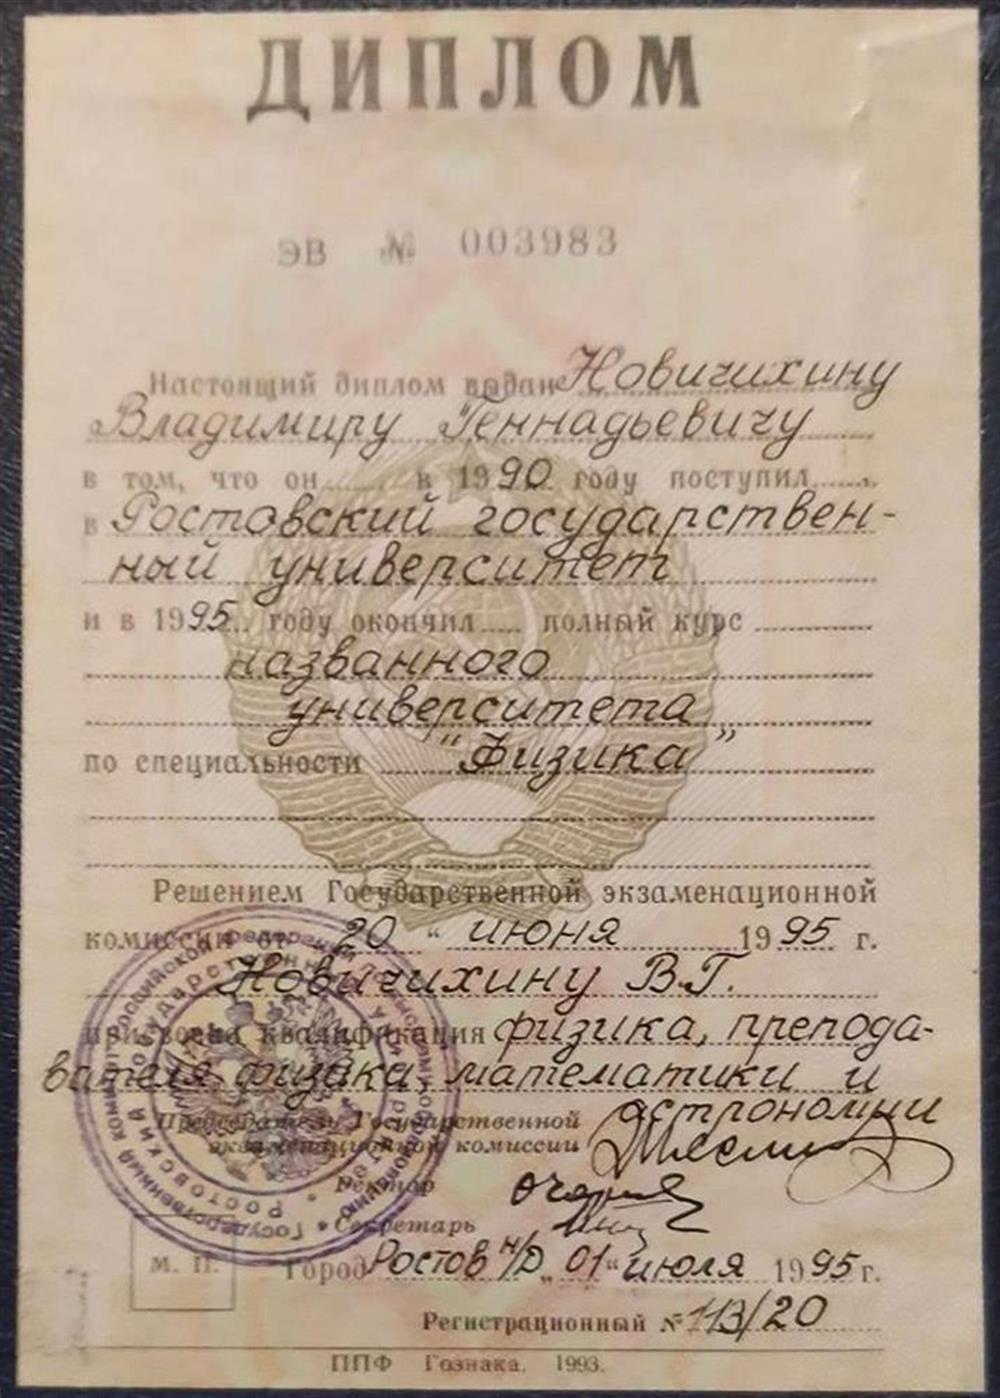 ДИПЛОМ
ЭВ № 003983
Настоящий диплом выдан Новичихину
Владимиру Геннадьевичу
в том, что он в 1990 году поступил
в Ростовский государствен-
ный университет
и в 1995 году окончил полный курс
названного
университета
по специальности "Физика"
Решением Государственной экзаменационной
комиссии от 20 " июня 1995 г.
Новичихину В.Г.
присвоена квалификация физика, препода-
вателя физика, математики и
астрономии
Председатель Государственной
экзаменационной комиссии
Ректор
Секретарь
М. П.
Город Ростов н/Д „ 01 " июля 1995 г.
Регистрационный № 113/20
ППФ Гознака. 1993.